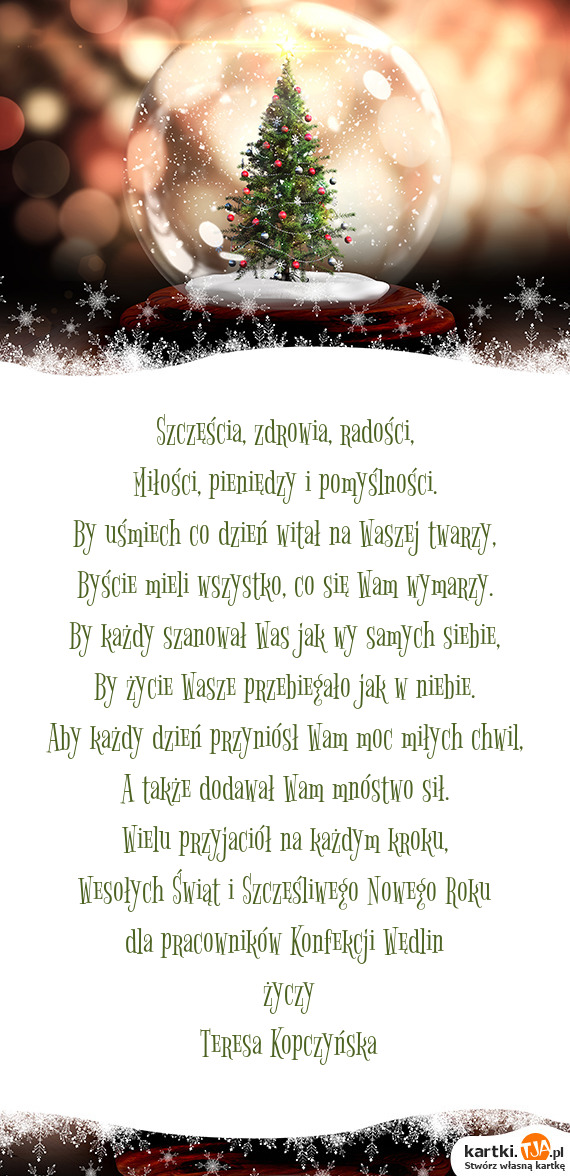 Szczęścia, zdrowia, radości,
Miłości, pieniędzy i pomyślności.
By uśmiech co dzień witał na Waszej twarzy,
Byście mieli wszystko, co się Wam wymarzy.
By każdy szanował Was jak wy samych siebie,
By życie Wasze przebiegało jak w niebie.
Aby każdy dzień przyniósł Wam moc miłych chwil,
A także dodawał Wam mnóstwo sił.
Wielu przyjaciół na każdym kroku,
Wesołych Świąt i Szczęśliwego Nowego Roku
dla pracowników Konfekcji Wędlin
życzy
Teresa Kopczyńska
kartki.TJA.pl
Stwórz własną kartkę